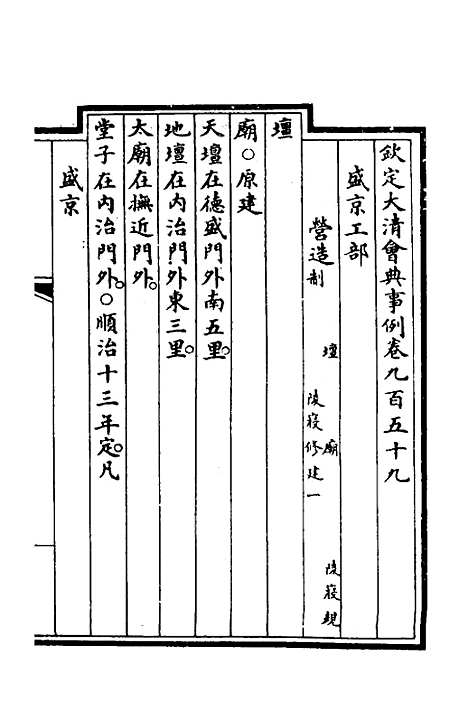 欽定大清會典事例卷九百五十九
盛京工部
營造 壇 廟 陵寢規
制 陵寢修建一
壇
廟○原建
天壇在德盛門外南五里。
地壇在內治門外東三里。
太廟在撫近門外。
堂子在內治門外。○順治十三年定。凡
盛京